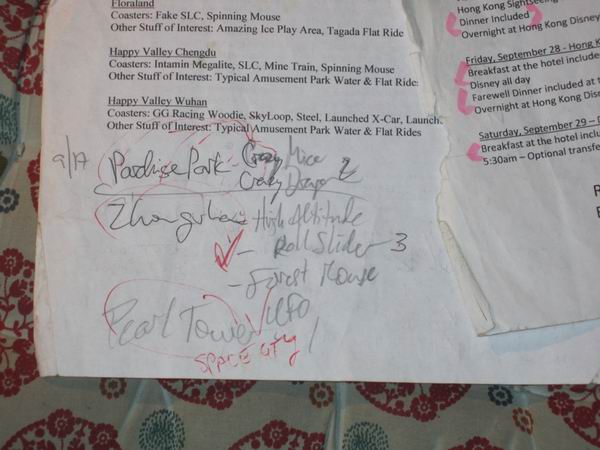 Floraland
Coasters: Fake SLC, Spinning Mouse
Other Stuff of Interest: Amazing Ice Play Area, Tagada Flat Ride
Happy Valley Chengdu
Coasters: Intamin Megalite, SLC, Mine Train, Spinning Mouse
Other Stuff of Interest: Typical Amusement Park Water & Flat Rides
Happy Valley Wuhan
Coasters: GG Racing Woodie, SkyLoop, Steel, Launched X-Car, Launch
Other Stuff of Interest: Typical Amusement Park Water & Flat Rides
9/17 Paradise Park - Crazy Mice
Crazy Dragon 2
High Altitude
- Roll Slider 3
- Forest Mouse
Pearl Tower UFO
SPACE CITY 1
Hong Kong Sightseeing
Dinner Included
Overnight at Hong Kong Disney
Friday, September 28 - Hong K
Breakfast at the hotel include
Disney all day
Farewell Dinner included at t
Overnight at Hong Kong Dis
Saturday, September 29 – D
Breakfast at the hotel inclu
5:30am – Optional transfe